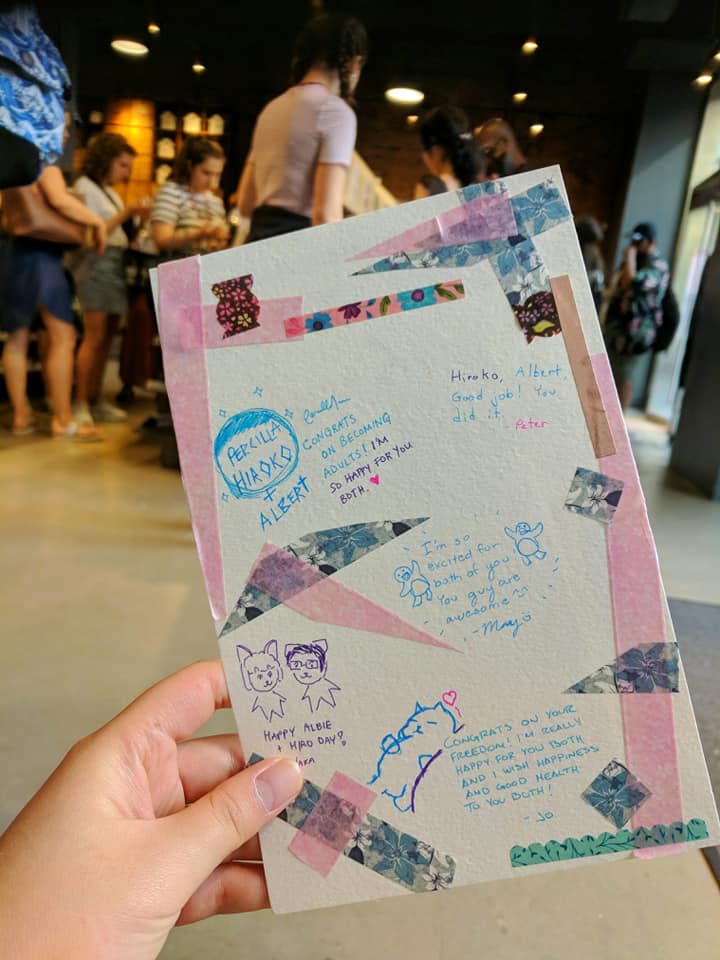 PERCILLA
HIROKO
+
ALBERT
CONGRATS
ON BECOMING
ADULTS! I'M
SO HAPPY FOR YOU
BOTH.
Hiroko, Albert,
Good job! You
did it.
- Peter
I'm so
excited for
both of you
You guy are
awesome
- May
HAPPY ALBIE
+ HIRO DAY!
CONGRATS ON YOUR
FREEDOM! I'M REALLY
HAPPY FOR YOU BOTH
AND I WISH HAPPINESS
AND GOOD HEALTH
TO YOU BOTH!
- JO